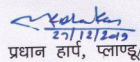 27/12/2019
प्रधान हार्प, प्लाण्डू